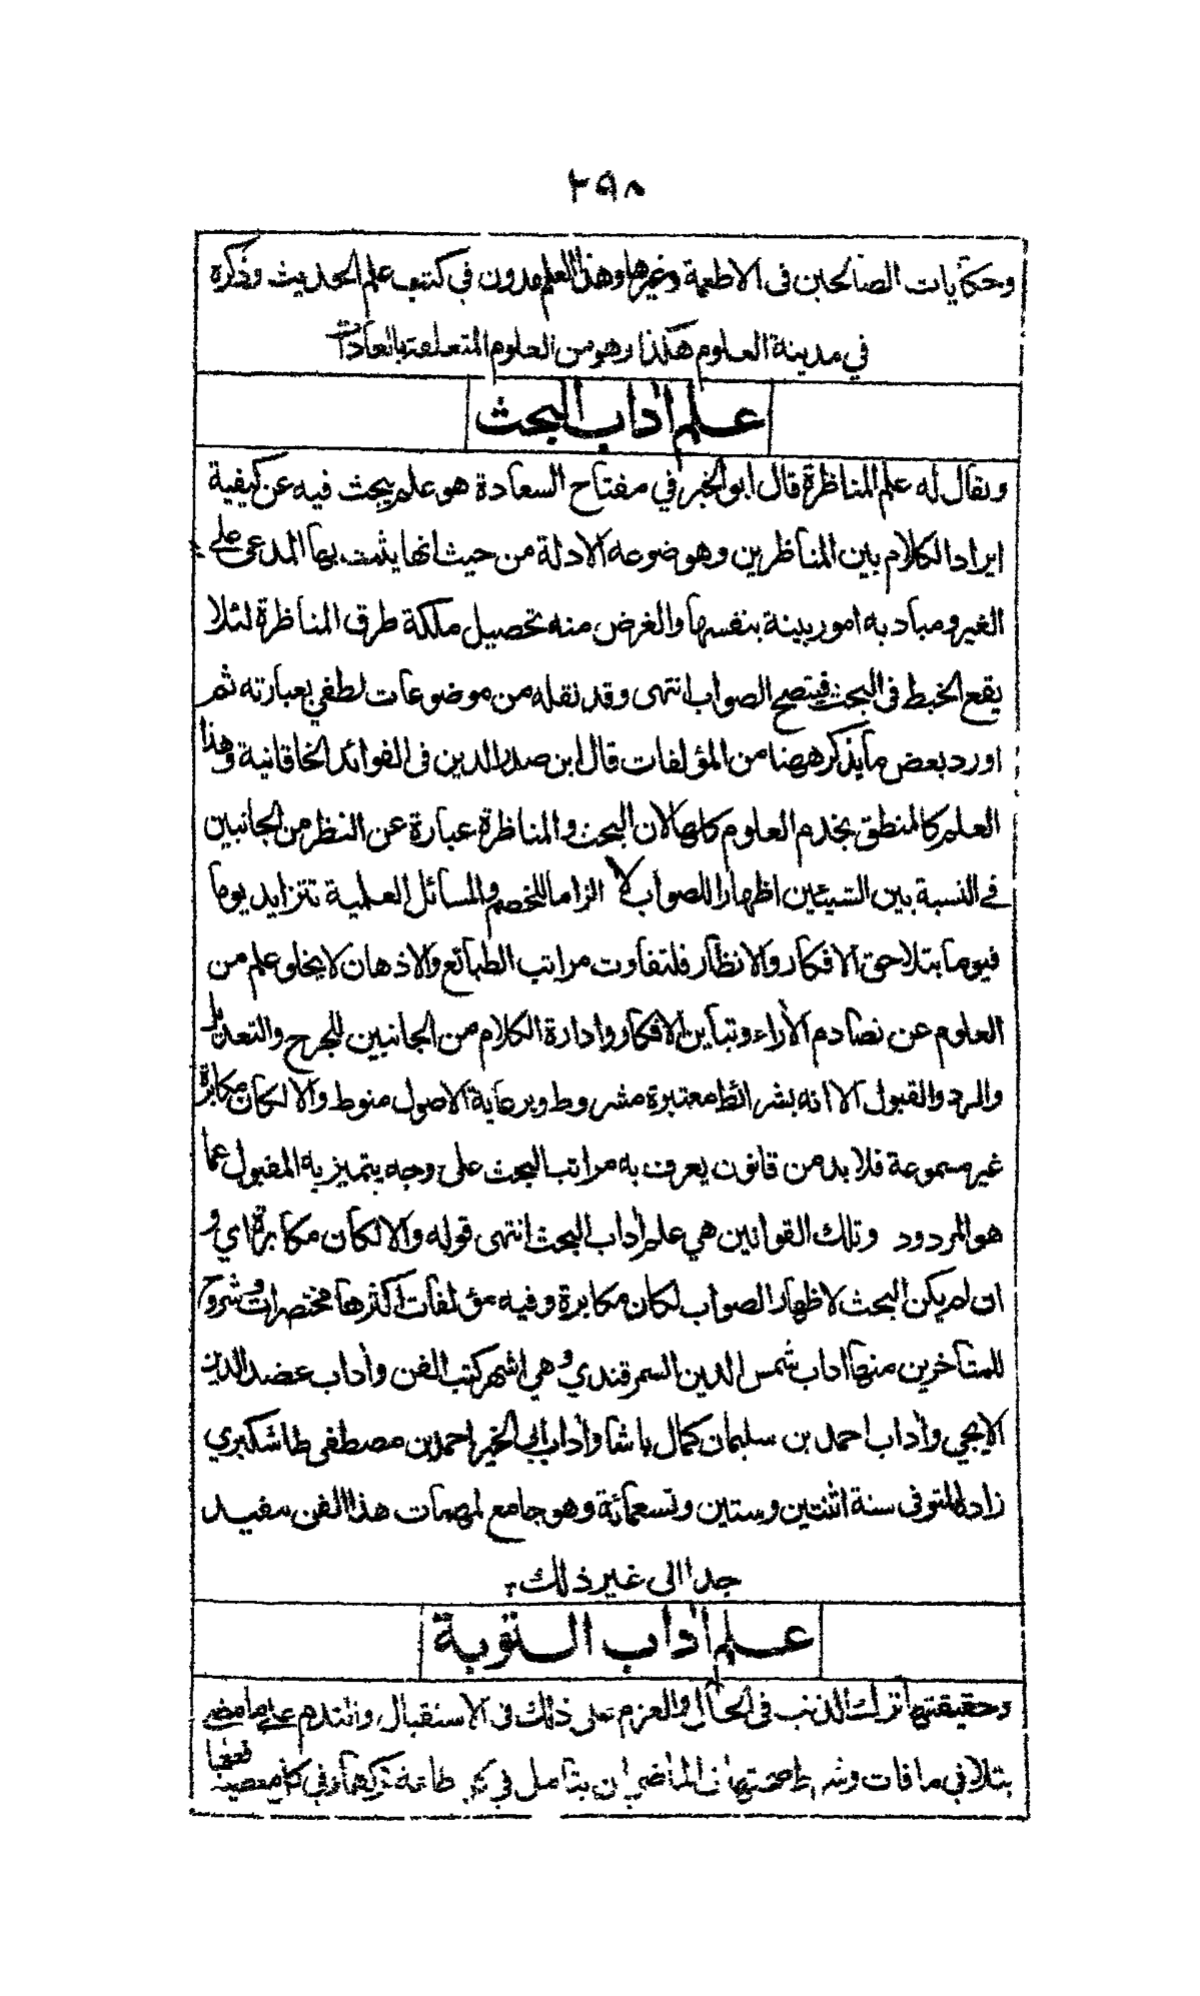 ٢٩٨
وحكايات الصالحين فى الاطعمة وغيرها وهذا العلم مدون في كتب علم الحديث وذكره
في مدينة العلوم هكذا وهو من العلوم المتعلقة بالعادات
علم اداب البحث
ويقال له علم المناظرة قال ابو الخير في مفتاح السعادة هو علم يبحث فيه عن كيفية
ايراد الكلام بين المناظرين وموضوعه الادلة من حيث انها يثبت بها المدعى على
الغير ومباديه امور بينة بنفسها والغرض منه تحصيل ملكة طرق المناظرة لئلا
يقع الخبط فى البحث فيتضح الصواب انتهى وقد نقله من موضوعات لطفي بعبارته ثم
اورد بعض ما يذكر ههنا من المؤلفات قال ابن صدر الدين فى الفوائد الخاقانية وهذا
العلم كالمنطق يخدم العلوم كلها لان البحث والمناظرة عبارة عن النظر من الجانبين
في النسبة بين الشيئين اظهارا للصواب لا الزاما للخصم والمسائل العلمية تتزايد يوما
فيوما بتلاحق الافكار والانظار فلتفاوت مراتب الطبائع والاذهان لا يخلو علم من
العلوم عن تصادم الأراء وتباين الافكار وادارة الكلام من الجانبين للجرح والتعديل
والرد والقبول الا انه بشرائط معتبرة مشروط وبرعاية الاصول منوط والا لكان مكابرة
غير مسموعة فلا بد من قانون يعرف به مراتب البحث على وجه يتميز به المقبول عما
هو المردود وتلك القوانين هي علم أداب البحث انتهى قوله والا لكان مكابرة اي و
ان لم يكن البحث لاظهار الصواب لكان مكابرة وفيه مؤلفات اكثرها مختصرات وشروح
للمتأخرين منها اداب شمس الدين السمرقندي وهي اشهر كتب الفن وأداب عضد الدين
الايجي وأداب احمد بن سليمان كمال باشا وأداب ابي الخير احمد بن مصطفى طاشكبري
زاده المتوفى سنة اثنتين وستين وتسعمائة وهو جامع لمهمات هذا الفن مفيد
جدا الى غير ذلك
علم اداب التوبة
وحقيقتها ترك الذنب فى الحال والعزم على ذلك فى الاستقبال والندم على ما مضى
بتلافى ما فات وشرط صحتها فى الماضي ان يتأمل في كل طاعة تركها وفي كل معصية فعلها